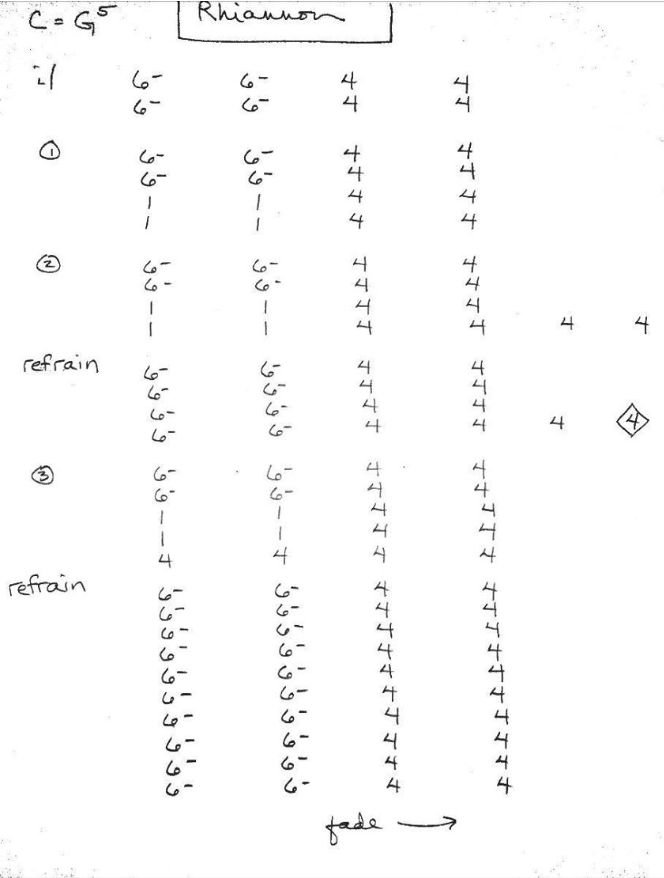 C = G⁵ Rhiannon
i/ 6- 6- 4 4
6- 6- 4 4
① 6- 6- 4 4
6- 6- 4 4
1 1 4 4
1 1 4 4
② 6- 6- 4 4
6- 6- 4 4
1 1 4 4
1 1 4 4 4 4
refrain 6- 6- 4 4
6- 6- 4 4
6- 6- 4 4
6- 6- 4 4 4 4
③ 6- 6- 4 4
6- 6- 4 4
1 1 4 4
1 1 4 4
4 4 4 4
refrain 6- 6- 4 4
6- 6- 4 4
6- 6- 4 4
6- 6- 4 4
6- 6- 4 4
6- 6- 4 4
6- 6- 4 4
6- 6- 4 4
6- 6- 4 4
6- 6- 4 4
fade →